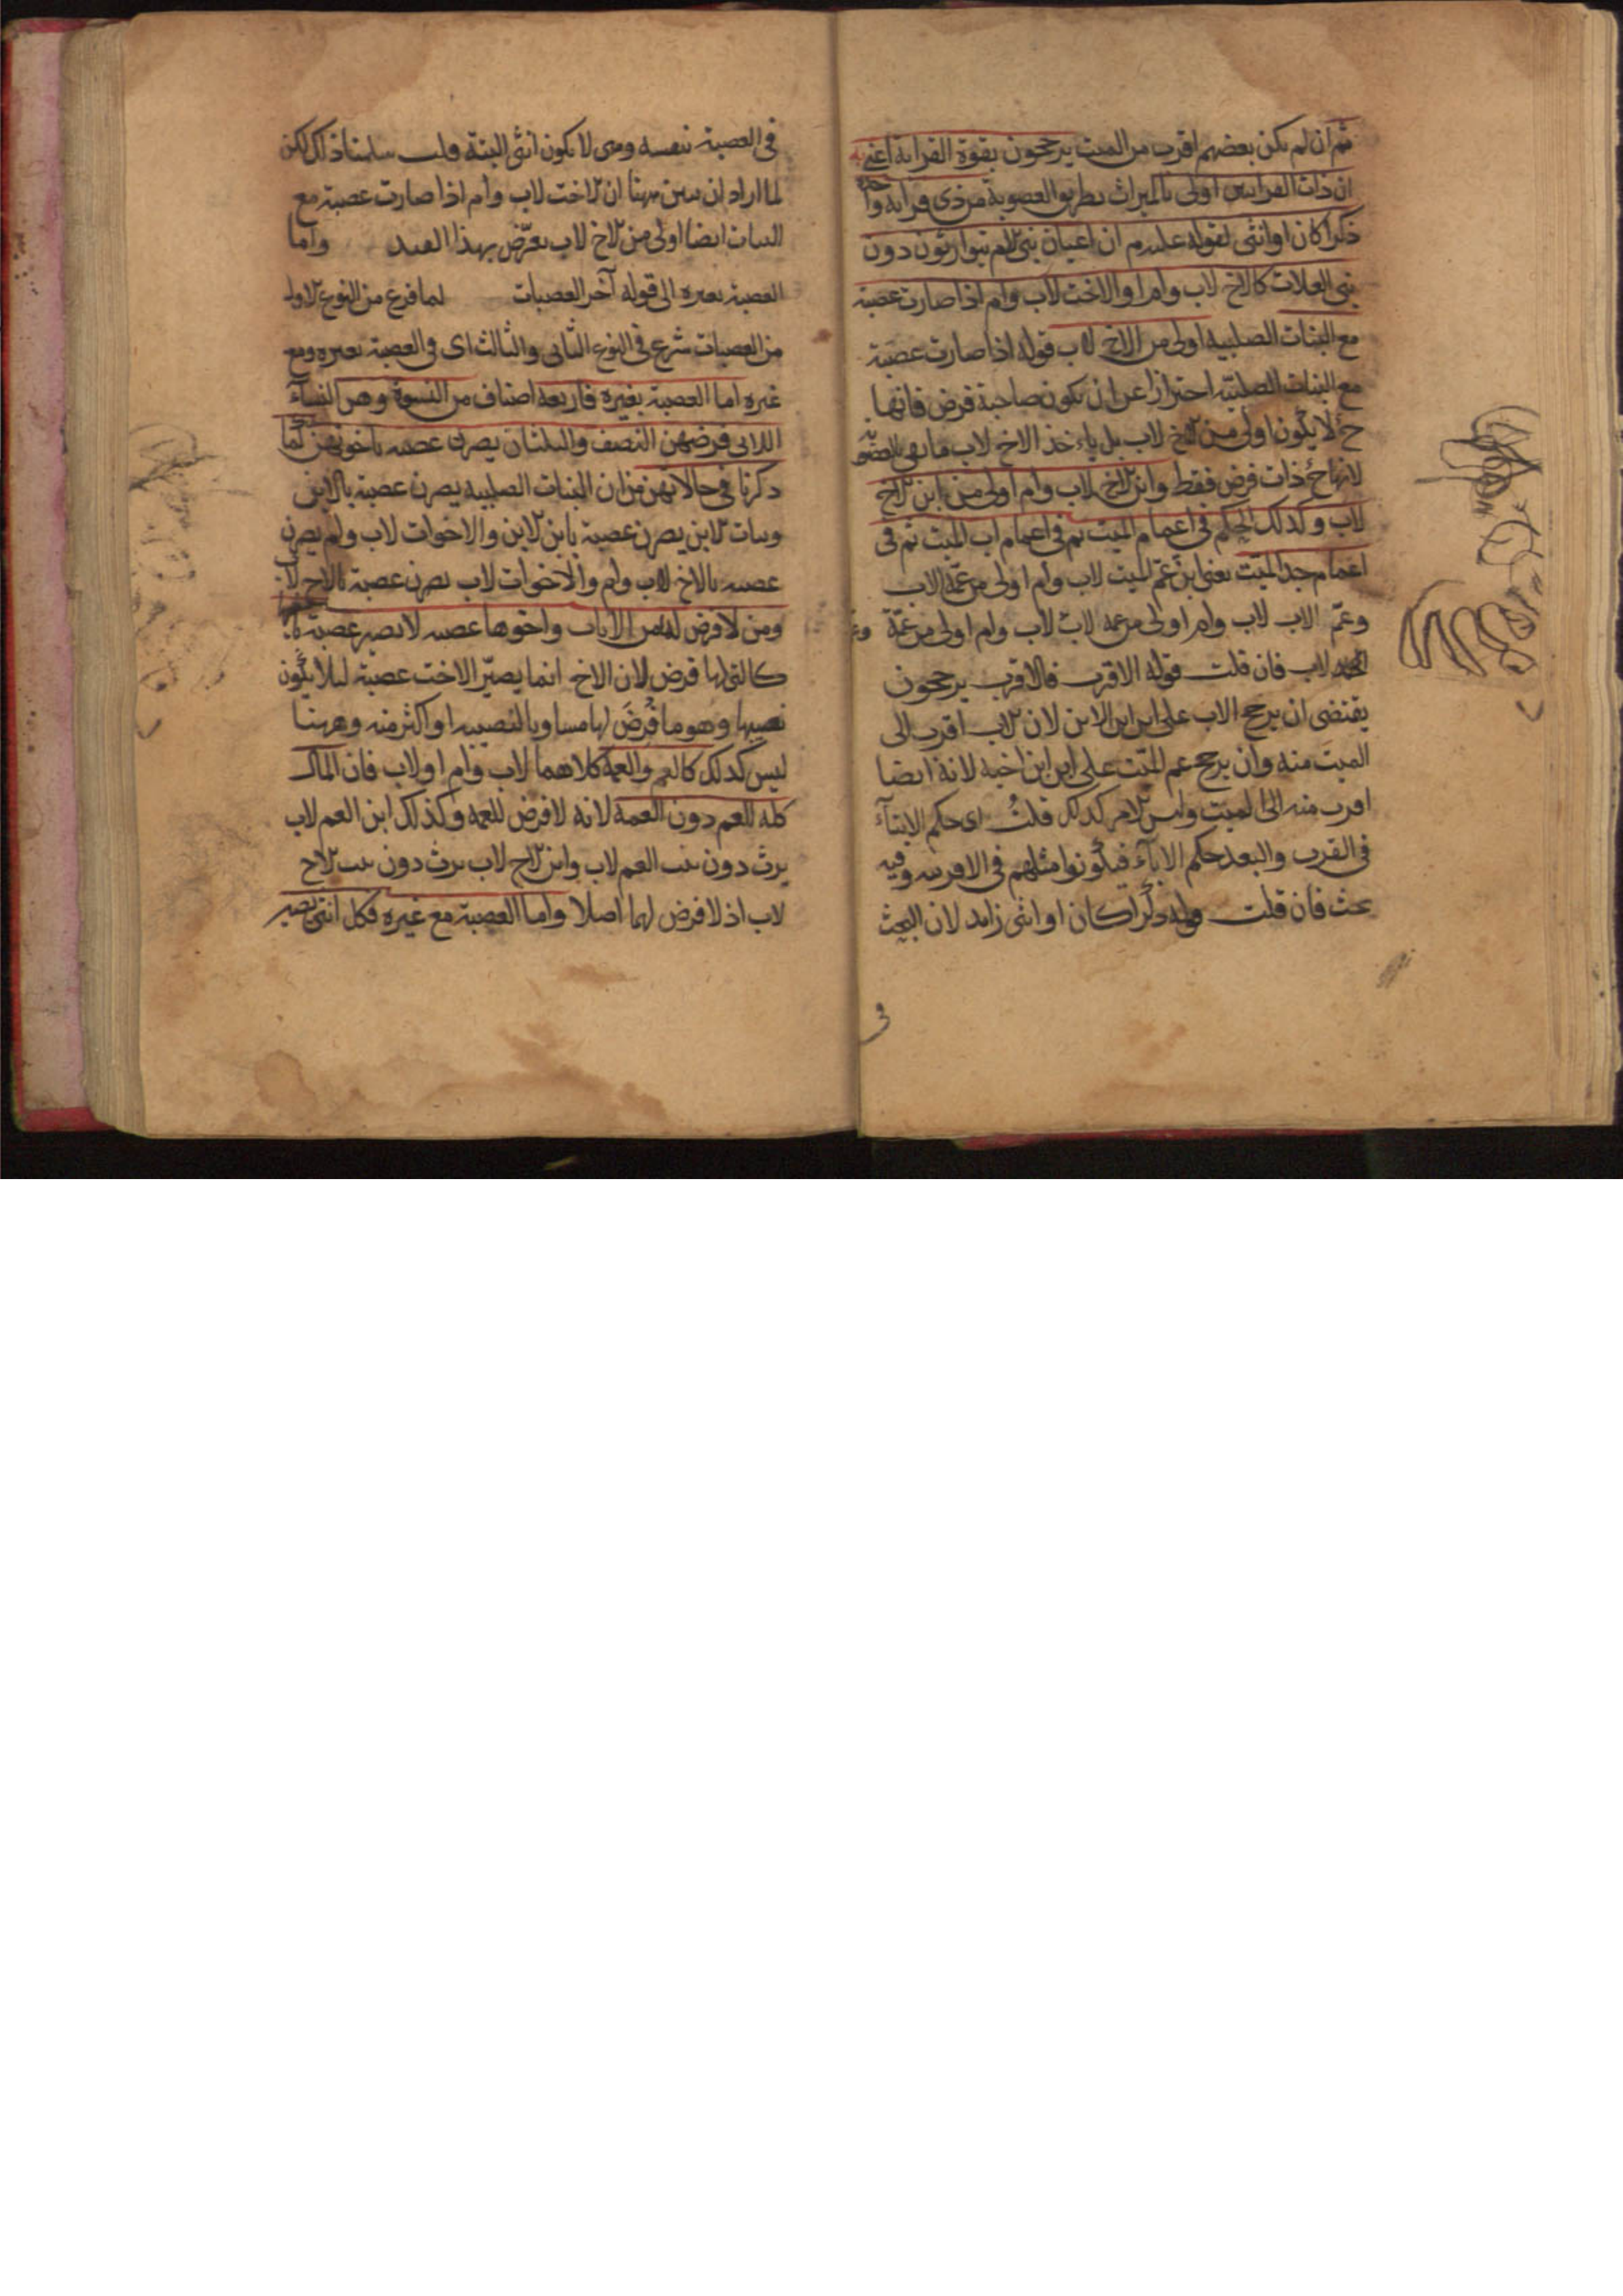 ثم ان لم يكن بعضهم اقرب من الميت يرجحون بقوة القرابة اعنى به
ان ذات القرابتين اولى بالميراث بطريق العصوبة من ذى قرابة واحدة
ذكرا كان او انثى لقوله علم ان اعيان بنى الام يتوارثون دون
بنى العلات كالاخ لاب وام او الاخت لاب وام اذا صارت عصبة
مع البنات الصلبية اولى من الاخ لاب قوله اذا صارت عصبة
مع البنات الصلبية احتراز عن ان تكون صاحبة فرض فانها
ح لا يكون اولى من الاخ لاب بل ياءخذ الاخ لاب ما بقى بالعصوبة
لانها ح ذات فرض فقط وابن الاخ لاب وام اولى من ابن الاخ
لاب وكذلك الحكم فى اعمام الميت ثم فى اعمام اب الميت ثم فى
اعمام جد الميت يعنى ابن عم الميت لاب وام اولى من عمه لاب
وعم الاب لاب وام اولى من عمه لاب وام اولى من عمة
لاب فان قلت قوله الاقرب فالاقرب يرجحون
يقتضى ان يرجح الاب على ابن ابن الابن لان الاب اقرب الى
الميت منه وان يرجح عم الميت على ابن ابن اخيه لانه ايضا
اقرب منه الى الميت وليس الامر كذلك قلت اى حكم الابناء
فى القرب والبعد حكم الاباء فيكونوا مثلهم فى الاقربية وفيه
بحث فان قلت قوله ذكرا كان او انثى زايد لان البحث
فى
فى العصبة بنفسه وهى لا يكون انثى البتة قلت سلمنا ذلك لكن
لما اراد ان يبين ههنا ان الاخت لاب وام اذا صارت عصبة مع
البنات ايضا اولى من الاخ لاب تعرض بهذا القيد واما
العصبة بغيره الى قوله آخر العصبات لما فرغ من النوع الاول
من العصبات شرع فى النوع الثانى والثالث اى فى العصبة بغيره ومع
غيره اما العصبة بغيره فاربعة اصناف من النسوة وهن النساء
اللاتى فرضهن النصف والثلثان يصرن عصبة باخوتهن كما
ذكرنا فى حالاتهن من ان البنات الصلبية يصرن عصبة بالابن
وبنات الابن يصرن عصبة بابن الابن والاخوات لاب ولم يصرن
عصبة بالاخ لاب وام والاخوات لاب يصرن عصبة بالاخ لاب
ومن لا فرض لها من الاناث واخوها عصبة لا يصير عصبة باخيها
كالتى لها فرض لان الاخ انما يصير الاخت عصبة ليلا يكون
نصيبها وهو ما فرض لها مساويا لنصيبه او اكثر منه وههنا
ليس كذلك كالعم والعمة كلاهما لاب وام او لاب فان المال
كله للعم دون العمة لانه لا فرض للعمة وكذلك ابن العم لاب
يرث دون بنت العم لاب وابن الاخ لاب يرث دون بنت الاخ
لاب اذ لا فرض لهما اصلا واما العصبة مع غيره فكل انثى تصير